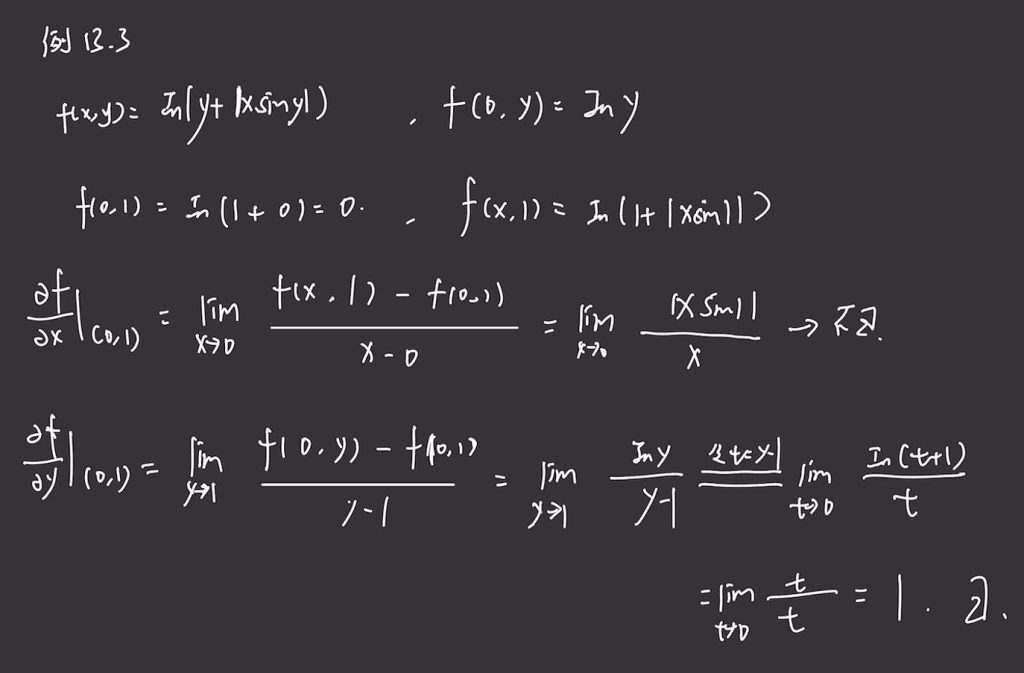 例 13.3
f(x,y) = ln(y+|xsiny|) , f(0,y) = ln y
f(0,1) = ln(1+0) = 0. , f(x,1) = ln(1+|xsin1|)
∂f/∂x|(0,1) = lim x→0 (f(x,1) - f(0,1))/(x-0) = lim x→0 |xsin1|/x → 不∃.
∂f/∂y|(0,1) = lim y→1 (f(0,y) - f(0,1))/(y-1) = lim y→1 ln y/(y-1) 令t=y-1 lim t→0 ln(t+1)/t
= lim t→0 t/t = 1. ∃.